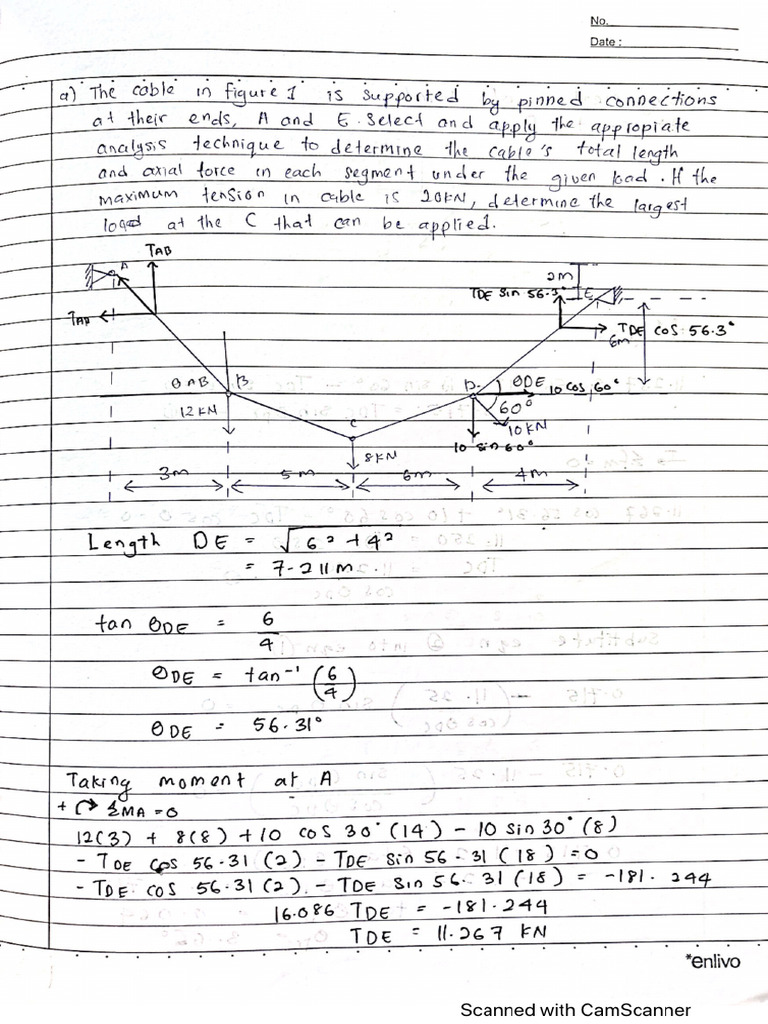 No.
Date :
a) The cable in figure 1 is supported by pinned connections
at their ends, A and E. Select and apply the appropiate
analysis technique to determine the cable's total length
and axial force in each segment under the given load. If the
maximum tension in cable is 20KN, determine the largest
load at the C that can be applied.
TAB
A
2m
TDE Sin 56.3°
E
TAB
TDE cos 56.3°
6m
θAB
B
D
θDE
10 cos 60°
60°
12 KN
C
10 KN
10 sin 60°
8KN
3m
5m
6m
4m
Length DE = √6² + 4²
= 7.211m
tan θDE = 6/4
θDE = tan⁻¹ (6/4)
θDE = 56.31°
Taking moment at A
+ ↷ ΣMA = 0
12(3) + 8(8) + 10 cos 30° (14) - 10 sin 30° (8)
- TDE cos 56.31 (2) - TDE sin 56.31 (18) = 0
- TDE cos 56.31 (2) - TDE sin 56.31 (18) = -181.244
16.086 TDE = -181.244
TDE = 11.267 KN
*enlivo
Scanned with CamScanner